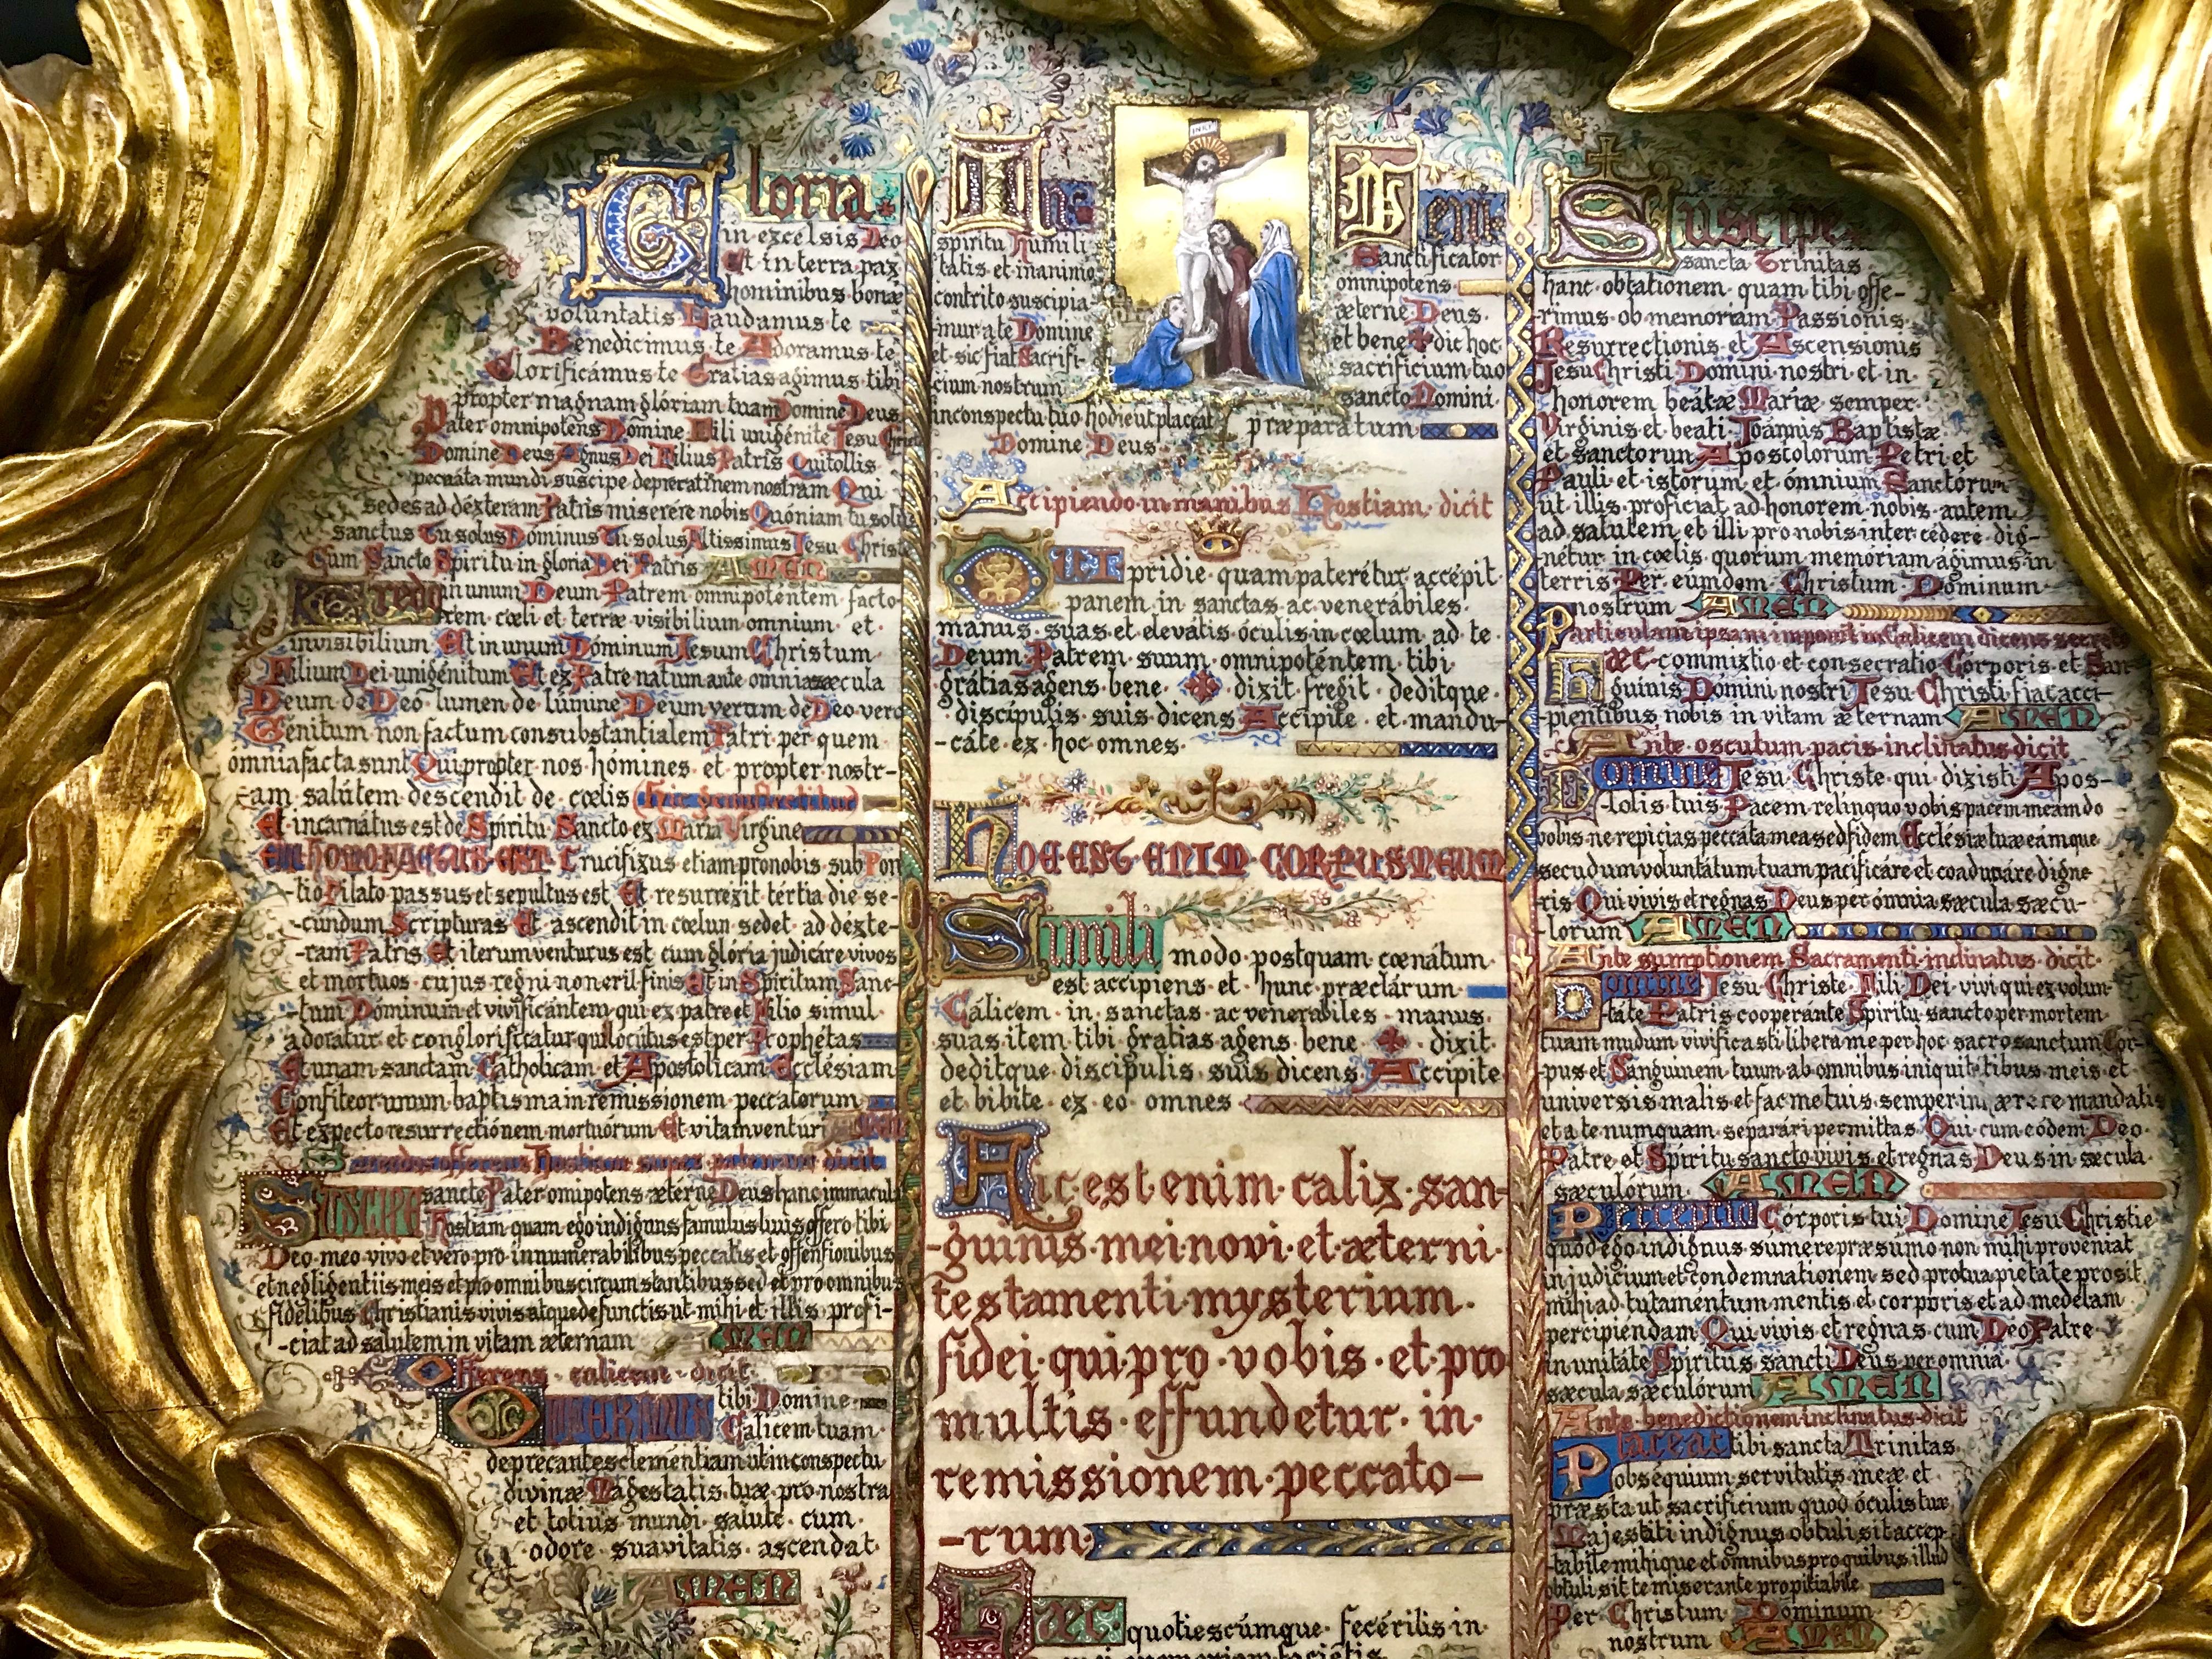 Gloria
in excelsis Deo
Et in terra pax
hominibus bonæ
voluntatis Laudamus te
Benedicimus te Adoramus te
Glorificámus te Gratias agimus tibi
propter magnam glóriam tuam Domine Deus
Pater omnipotens Domine Fili unigénite Jesu Christe
Domine Deus Agnus Dei Filius Patris Qui tollis
peccata mundi suscipe deprecatinem nostram Qui
sedes ad déxteram Patris miserére nobis Quóniam tu solus
sanctus Tu solus Dominus Tu solus Altissimus Jesu Christe
Cum Sancto Spiritu in gloria Dei Patris AMEN
Credo in unum Deum Patrem omnipoténtem facto-
rem cœli et terræ visibilium omnium et
invisibilium Et in unum Dominum Jesum Christum
Filium Dei unigénitum Et ex Patre natum ante omnia sæcula
Deum de Deo lumen de lúmine Deum verum de Deo vero
Génitum non factum consubstantialem Patri per quem
ómnia facta sunt Qui propter nos hómines et propter nostr-
-am salútem descendit de cœlis (hic genuflectitur)
Et incarnátus est de Spiritu Sancto ex María Virgine
ET HOMO FACTUS EST Crucifixus etiam pro nobis sub Pon
-tio Pilato passus et sepultus est Et resurrexit tértia die se-
-cúndum Scripturas Et ascendit in cœlun sedet ad déxte-
-ram Patris Et iterum venturus est cum glória judicáre vivos
et mortuos cujus regni non eril finis Et in Spiritum Sanc-
-tum Dóminum et vivificántem qui ex patre et Filio simul
adoratur et conglorificatur qui locútus est per Prophétas
Et unam sanctam Catholicam et Apostolicam Ecclésiam
Confiteor unum baptisma in remissionem peccatorum
Et expecto resurrectiónem mortuórum Et vitam venturi AMEN
Sacerdos offerens Hostiam super patenam dicit
SUSCIPE sancte Pater omipotens æterne Deus hanc immacula
Hostiam quam ego indignus famulus tuus offero tibi
Deo meo vivo et vero pro innumerabilibus peccatis et offensionibus
et negligentiis meis et pro omnibus circumstantibus sed et pro omnibus
fidelibus Christianis vivis atque defunctis ut mihi et illis profi-
-ciat ad salutem in vitam æternam AMEN
Offerens calicem dicit
OFFERIMUS tibi Domine
Calicem tuam
deprecantes clementiam ut in conspectu
divinæ Magestatis tuæ pro nostra
et totius mundi salute cum
odore suavitatis ascendat
AMEN
In
spiritu humili
tatis et in animo
contrito suscipia-
-mur a te Domine
et sic fiat Sacrifi-
cium nostrum
in conspectu tuo hodie ut placeat
Domine Deus
Veni
Sanctificator
omnipotens
æterne Deus
et bene ✠ dic hoc
sacrificium tuo
sancto Nomini
præparatum
Accipiendo in manibus Hostiam dicit
QUI pridie quam paterétur accépit
panem in sanctas ac venerábiles
manus suas et elevátis óculis in cœlum ad te
Deum Patrem suum omnipoténtem tibi
grátias agens bene ✠ dixit fregit deditque
discipulis suis dicens Accipite et mandu-
-cáte ex hoc omnes
HOE EST ENIM CORPUS MEUM
Simili modo postquam cœnátum
est accipiens et hunc præclárum
Cálicem in sanctas ac venerabiles manus
suas item tibi gratias agens bene ✠ dixit
deditque discipulis suis dicens Accipite
et bibite ex eo omnes
Hic est enim calix san-
-guinis mei novi et æterni
testamenti mysterium
fidei qui pro vobis et pro
multis effundetur in
remissionem peccato-
-rum
Hæc quotiescúmque fecérilis in
mei memoriam faciétis
INRI
Suscipe
sancta Trinitas
hanc oblationem quam tibi offe-
-rimus ob memoriam Passionis
Resurrectionis et Ascensionis
Jesu Christi Domini nostri et in
honorem beátæ Mariæ semper
Virginis et beati Joánnis Baptistæ
et sanctorun Apostolorum Petri et
Pauli et istorum et ómnium Sanctórum
ut illis proficiat ad honorem nobis autem
ad salutem et illi pro nobis intercédere dig-
-nétur in cœlis quorum memóriam ágimus in
terris Per eumdem Christum Dominum
nostrum AMEN
Particulam ipsam imponit in Calicem dicens secrete
Hæc commixtio et consecratio Corporis et San-
guinis Dómini nostri Jesu Christi fiat acci-
-pientibus nobis in vitam æternam AMEN
Ante osculum pacis inclinatus dicit
Domine Jesu Christe qui dixisti Apos-
-tolis tuis Pacem relinquo vobis pacem meam do
vobis ne repicias peccáta mea sed fidem Ecclésiæ tuæ eámque
secudum voluntátum tuam pacificáre et coadunáre digne
ris Qui vivis et regnas Deus per ómnia sæcula sæcu-
-lorum AMEN
Ante sumptionem Sacramenti inclinatus dicit
Domine Jesu Christe Fili Dei vivi qui ex volun-
-táte Patris cooperánte Spiritu sancto per mortem
tuam mudum vivificasti libera me per hoc sacrosanctum Cor-
pus et Sanguinem tuum ab omnibus iniquitátibus meis et
universis malis et fac me tuis semper inhærere mandatis
et a te numquam separári permittas Qui cum eódem Deo
Patre et Spiritu sancto vivis et regnas Deus in sæcula
sæculórum AMEN
Perceptio Córporis tui Domine Jesu Christie
quod ego indignus sumere præsúmo non mihi provéniat
in judicium et condemnationem sed pro tua pietáte prosit
mihi ad tutaméntum mentis et corporis et ad medelam
percipiendam Qui vivis et regnas cum Deo Patre
in unitáte Spiritus sancti Deus per omnia
sæcula sæculórum AMEN
Ante benedictionem inclinatus dicit
Placeat tibi sancta Trinitas
obséquium servitutis meæ et
præsta ut sacrificium quod óculis tuæ
Majestáti indignus obtuli sit accep-
-tabile mihique et omnibus pro quibus illud
obtuli sit te miserante propitiabile
Per Christum Dominum
nostrum AMEN